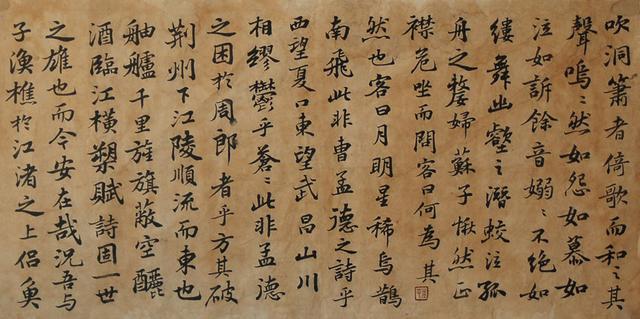 吹洞簫者倚歌而和〻其
聲嗚〻然如怨如慕如
泣如訴餘音嫋〻不絕如
縷舞幽壑之潛蛟泣孤
舟之嫠婦蘇子愀然正
襟危坐而問客曰何為其
然也客曰月明星稀烏鵲
南飛此非曹孟德之詩乎
西望夏口東望武昌山川
相繆鬱乎蒼〻此非孟德
之困於周郎者乎方其破
荆州下江陵順流而東也
舳艫千里旌旗蔽空釃
酒臨江橫槊賦詩固一世
之雄也而今安在哉況吾與
子漁樵於江渚之上侶魚